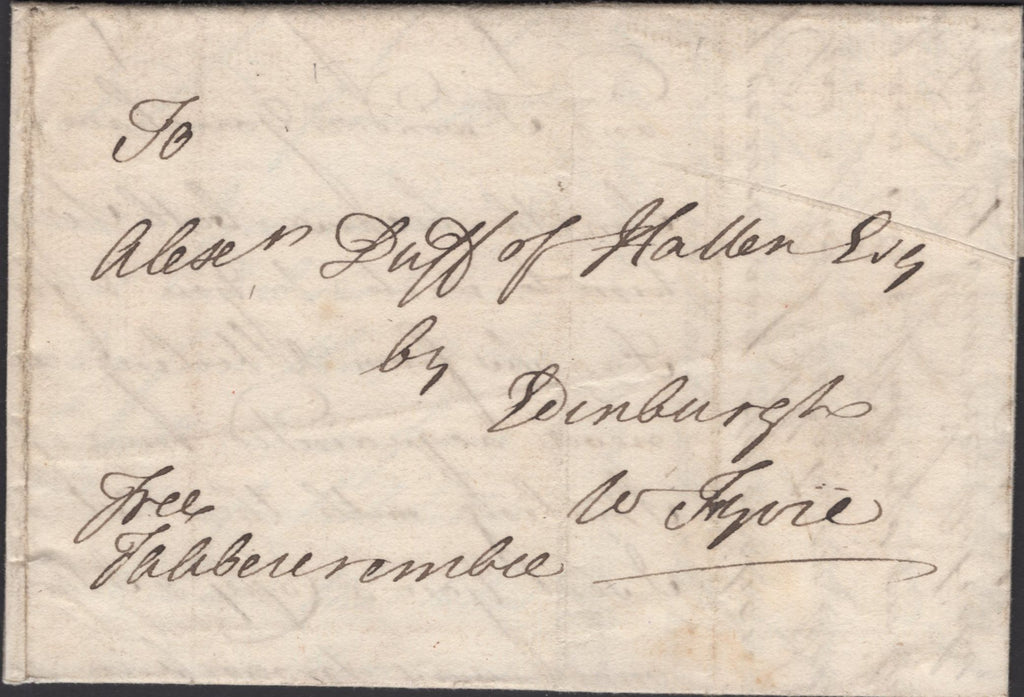 To
Alexr Duff of Hatten Esq
by
Edinburgh
W Fyvie
Free